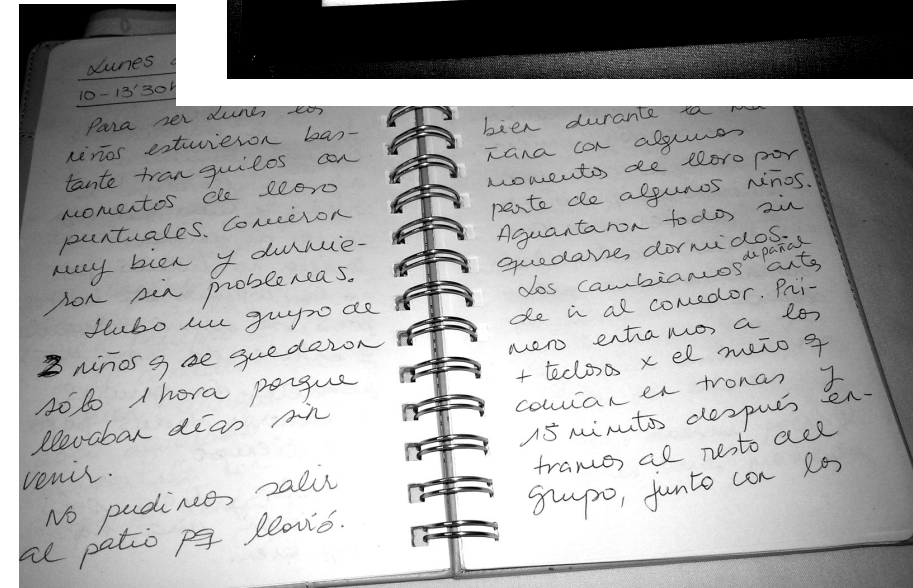 Lunes
10-13'30h
Para ser Lunes los
niños estuvieron bas-
tante tranquilos con
momentos de lloro
puntuales. Comieron
muy bien y durmie-
ron sin problemas.
Hubo un grupo de
3 niños q se quedaron
sólo 1 hora porque
llevaban días sin
venir.
No pudimos salir
al patio pq llovió.
bien durante la ma
ñana con algunos
momentos de lloro por
parte de algunos niños.
Aguantaron todos sin
quedarse dormidos.
Los cambiamos de pañal antes
de ir al comedor. Pri-
mero entramos a los
+ x el sueño q
comían en tronas y
15 minutos después en-
tramos al resto del
grupo, junto con los